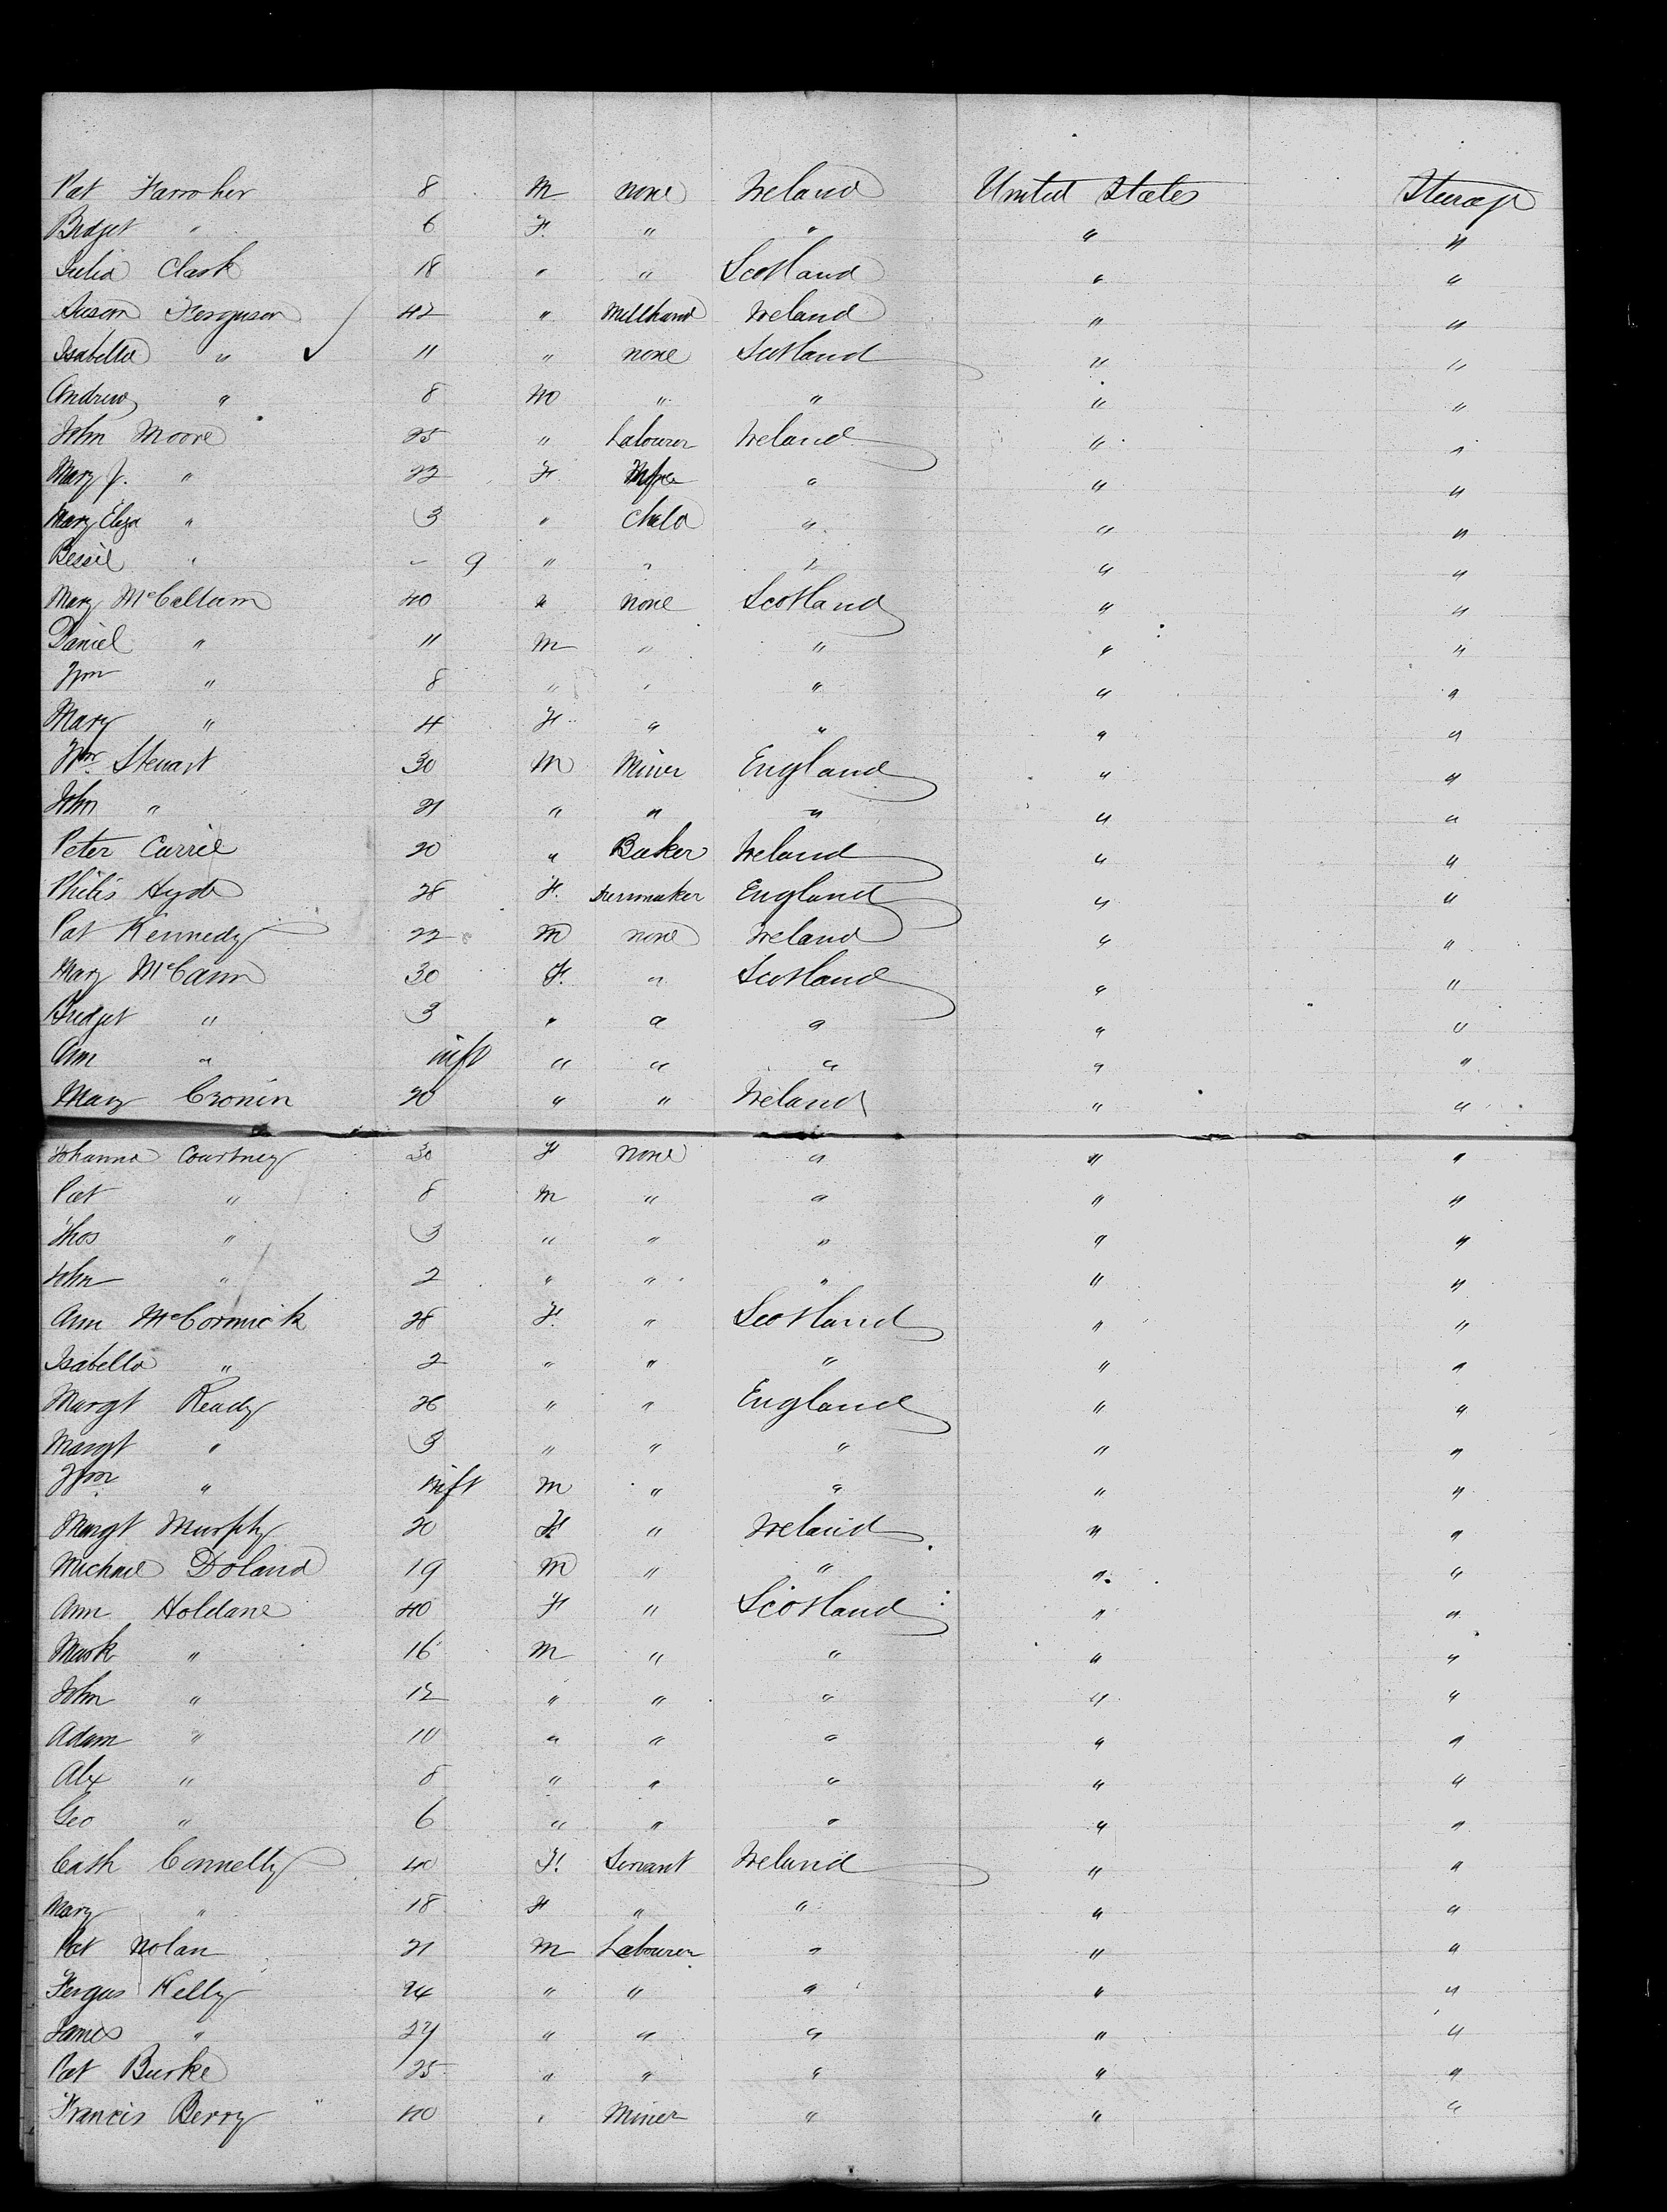 Pat Farroher 8 M none Ireland United States Steerage
Bridget " 6 F. " " " "
Julia Clark 18 " " Scotland " "
Susan Ferguson 42 " Millhand Ireland " "
Isabella " 11 " none Scotland " "
Andrew " 8 M " " " "
John Moore 25 " Labourer Ireland " "
Mary J. " 22 F Wife " " "
Mary Eliza " 3 " Child " " "
Bessie " - 9 " " " " "
Mary McCallum 40 " none Scotland " "
Daniel " 11 M " " " "
Wm " 8 " " " " "
Mary " 4 F. " " " "
Wm. Stewart 30 M Miner England " "
John " 21 " " " " "
Peter Currie 20 " Baker Ireland " "
Philis Hyde 28 F. Dressmaker England " "
Pat Kennedy 22 M none Ireland " "
Mary McCann 30 F. " Scotland " "
Bridget " 3 " " " " "
Ann " inft " " " " "
Mary Cronin 20 " " Ireland " "
Johanna Courtney 30 F none " " "
Pat " 8 M " " " "
Thos " 3 " " " " "
John " 2 " " " " "
Ann McCormick 28 F. " Scotland " "
Isabella " 2 " " " " "
Margt Ready 26 " " England " "
Margt " 3 " " " " "
Wm. " inft M " " " "
Margt Murphy 20 F " Ireland " "
Michael Doland 19 M " " " "
Ann Holdane 40 F " Scotland " "
Mark " 16 M " " " "
John " 12 " " " " "
Adam " 10 " " " " "
Alex " 8 " " " " "
Geo " 6 " " " " "
Cath Connelly 40 F. Servant Ireland " "
Mary " 18 F " " " "
Pat Nolan 21 M Labourer " " "
Fergus Kelly 24 " " " " "
James " 27 " " " " "
Pat Burke 25 " " " " "
Francis Berry 40 " Miner " " "